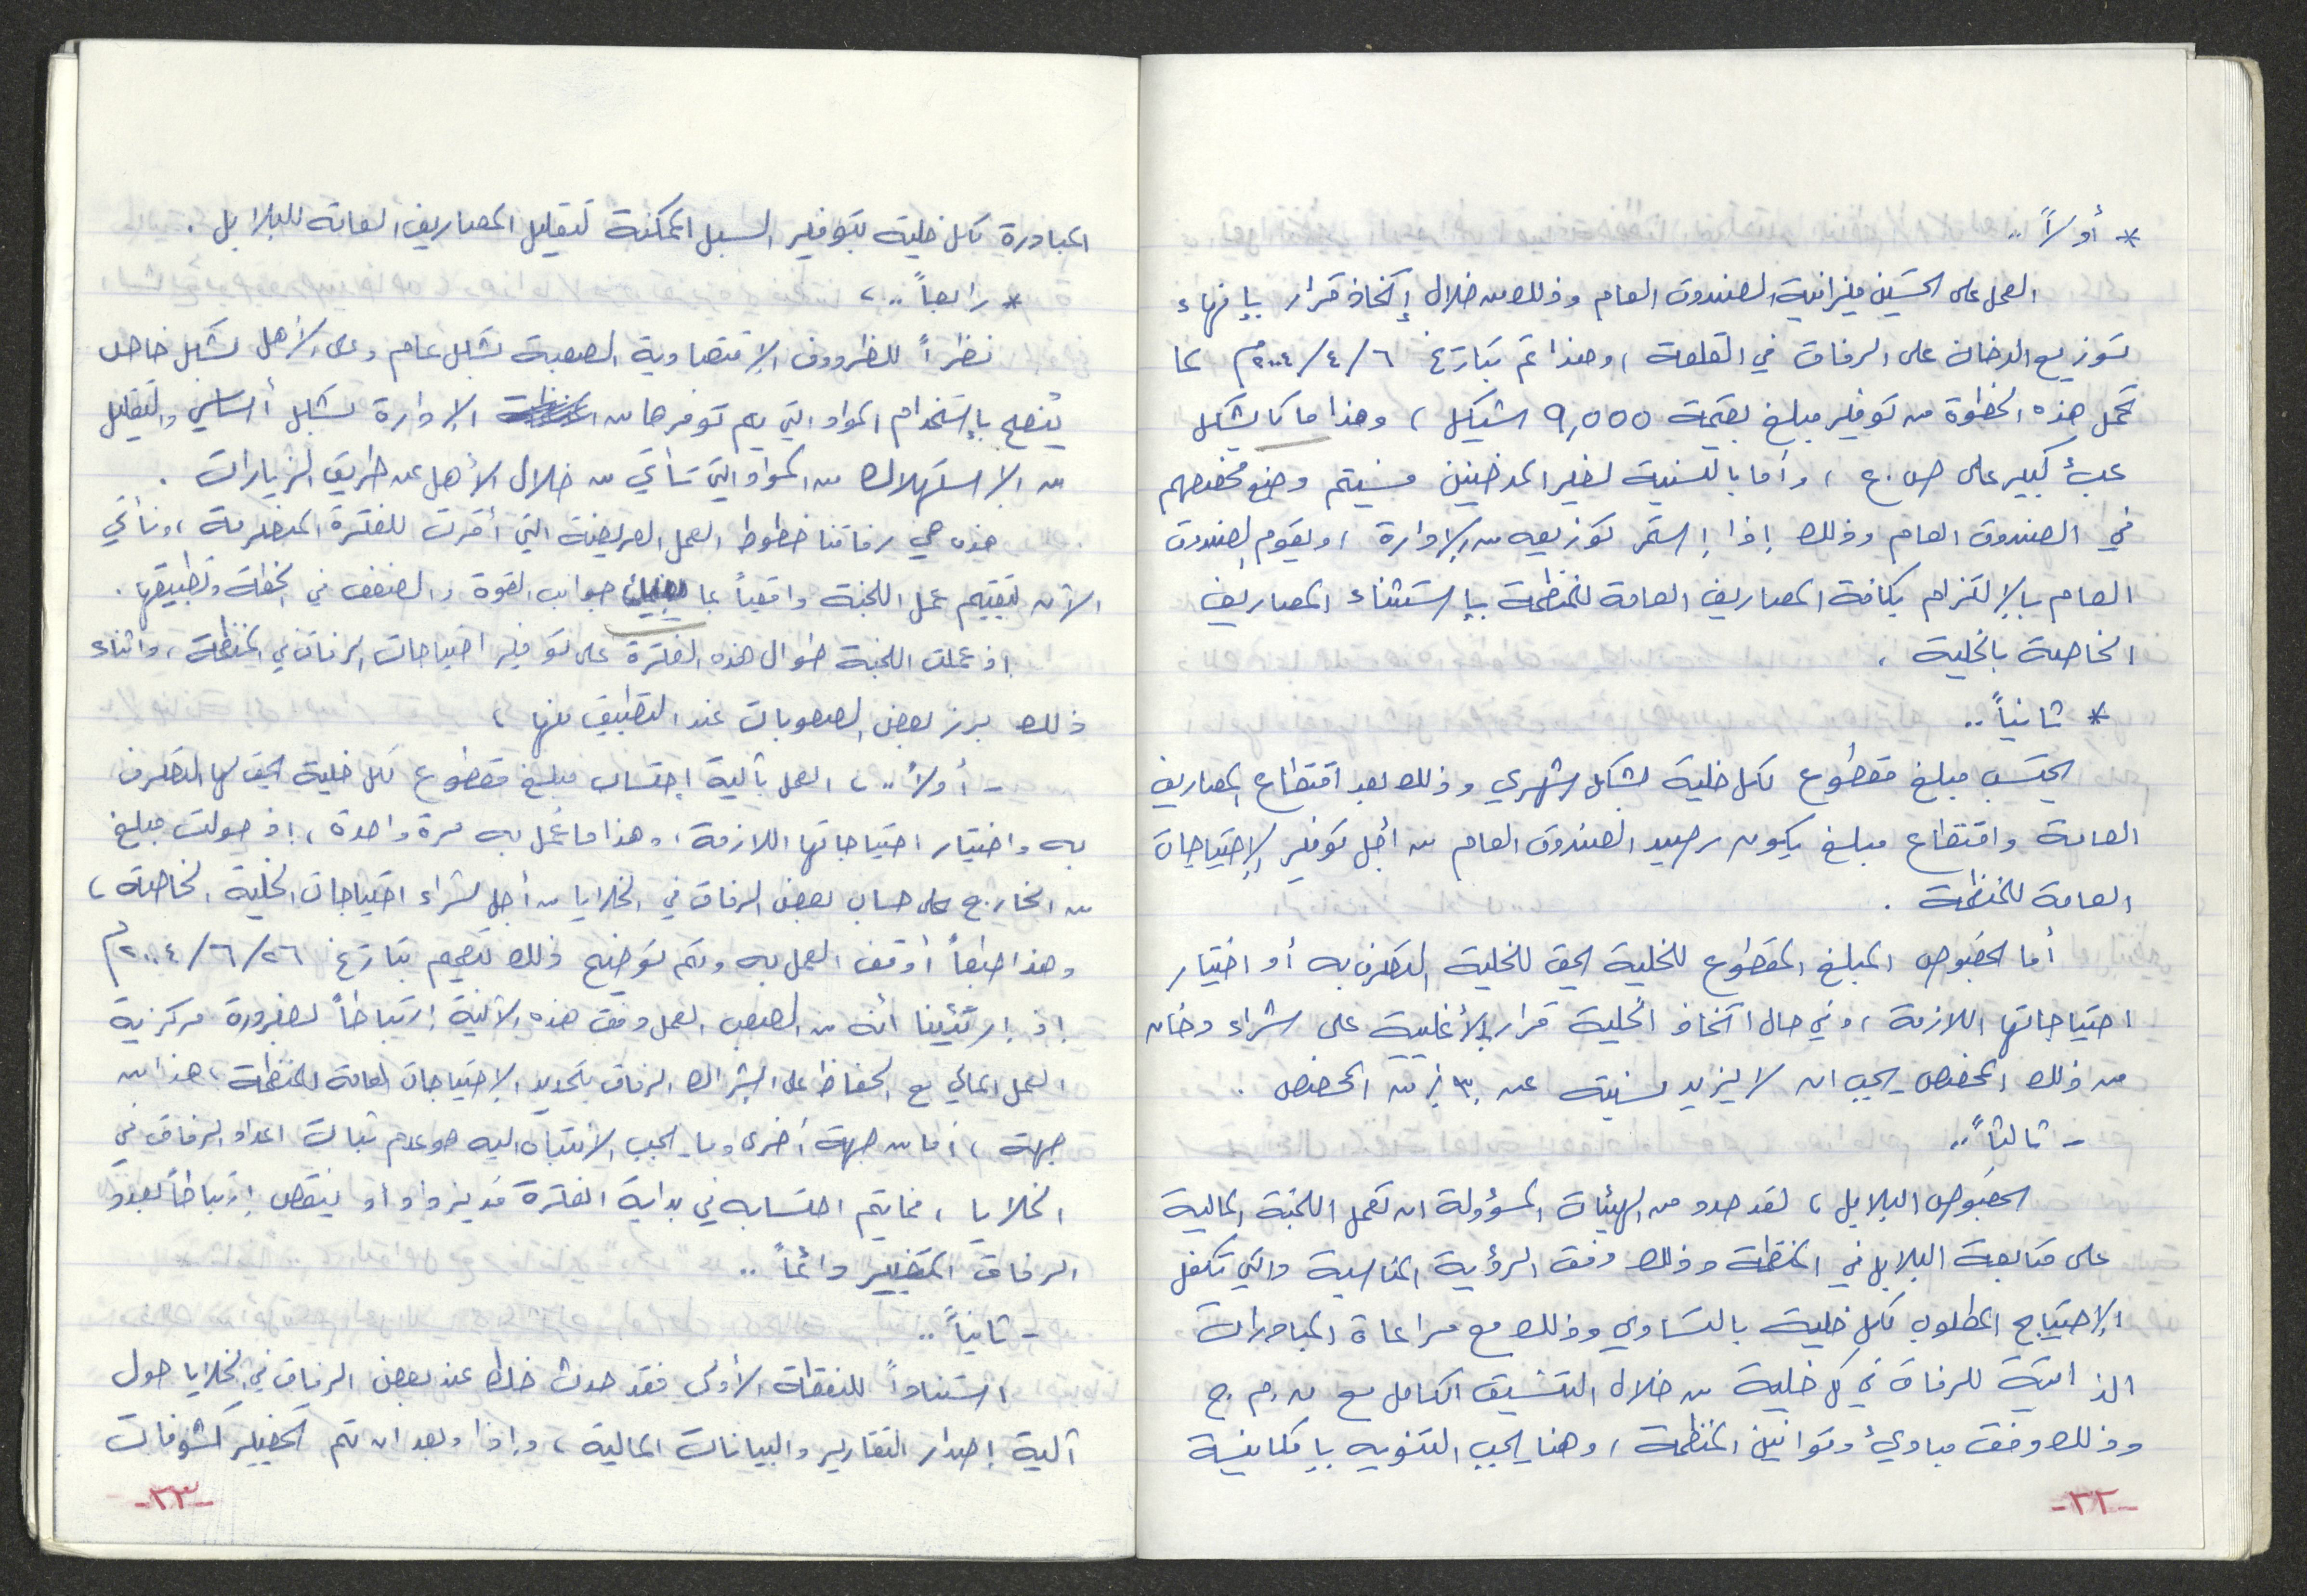 * أولاً ..
العمل على تحسين ميزانية الصندوق العام وذلك من خلال إتخاذ قرار بإنهاء
توزيع الدخان على الرفاق في القلعة، وهذا تم بتاريخ ٦/٤/٢٠٠٤م كما
تحمل هذه الخطوة من توفير مبلغ بقيمة ٩,٥٥٥ شيكل، وهذا ما كان يشكل
عبئ كبير على ص.ع، وأما بالنسبة لغير المدخنين فسيتم وضع مخصصهم
في الصندوق العام وذلك إذا إستمر توزيعه من الإدارة، ويقوم الصندوق
العام بالإلتزام بكافة المصاريف العامة للمنظمة بإستثناء المصاريف
الخاصة بالخلية.
* ثانياً ..
يحتسب مبلغ مقطوع لكل خلية بشكل شهري وذلك بعد اقتطاع المصاريف
العامة واقتطاع مبلغ يكون رصيد الصندوق العام من أجل توفير الإحتياجات
العامة للمنظمة.
أما بخصوص المبلغ المقطوع للخلية يحق للخلية التصرف به أو اختيار
احتياجاتها اللازمة، وفي حال اتخاذ الخلية قرار بالأغلبية على شراء دخان
من ذلك المخصص يجب ان لا يزيد نسبته عن ٣٠٪ من المخصص.
- ثالثاً ..
بخصوص البلابل، لقد حدد من الهيئات المسؤولة ان تعمل اللجنة المالية
على متابعة البلابل في المنظمة وذلك وفق الرؤية المناسبة والتي تكفل
الإحتياج المطلوب لكل خلية بالتساوي وذلك مع مراعاة المبادرات
الذاتية للرفاق في كل خلية من خلال التنسيق الكامل مع ن.م.ج
وذلك وفق مبادئ وقوانين المنظمة، وهنا يجب التنويه بإمكانية
-٢٢-
المبادرة لكل خلية بتوفير السبل الممكنة لتقليل المصاريف العامة للبلابل.
* رابعاً ..،
نظراً للظروف الإقتصادية الصعبة بشكل عام وعلى الأهل بشكل خاص
ينصح بإستخدام المواد التي يتم توفرها من الإدارة بشكل أساسي والتقليل
من الإستهلاك من المواد التي تتأتي من خلال الأهل عن طريق الزيارات.
هذه هي رفاقنا خطوط العمل العريضة التي أقرت للفترة المنصرمة، ونأتي
الآن لتقييم عمل اللجنة واقعياً بما جوانب القوة والضعف في الخطة وتطبيقها.
إذ عملت اللجنة طوال هذه الفترة على توفير احتياجات الرفاق في المنظمة، واثناء
ذلك برز بعض الصعوبات عند التطبيق منها،
- أولاً ..، العمل بآلية إحتساب مبلغ مقطوع لكل خلية يحق لها التصرف
به واختيار احتياجاتها اللازمة، وهذا ما عمل به مرة واحدة، إذ حولت مبلغ
من الخارج على حساب بعض الرفاق في الخلايا من أجل شراء احتياجات الخلية الخاصة،
وهذا طبعاً أوقف العمل به وتم توضيح ذلك بتعميم بتاريخ ٢٦/٦/٢٠٠٤م
إذ إرتئينا أنه من الصعب العمل وفق هذه الآلية إرتباطاً لضرورة مركزية
العمل المالي مع الحفاظ على اشراك الرفاق بتحديد الإحتياجات العامة للمنظمة، هذا من
جهة، أما من جهة أخرى وما يجب الإنتباه اليه هو عدم ثبات اعداد الرفاق في
الخلايا، فما يتم احتسابه في بداية الفترة قد يزداد أو ينقص إرتباطاً بعدد
الرفاق المتغيير دائماً ..
- ثانياً ..
استناداً للنقطة الأولى فقد حدث خلط عند بعض الرفاق في الخلايا حول
آلية إصدار التقارير والبيانات المالية، وإذا وبعد ان تم تحضير كشوفات
-٢٣-